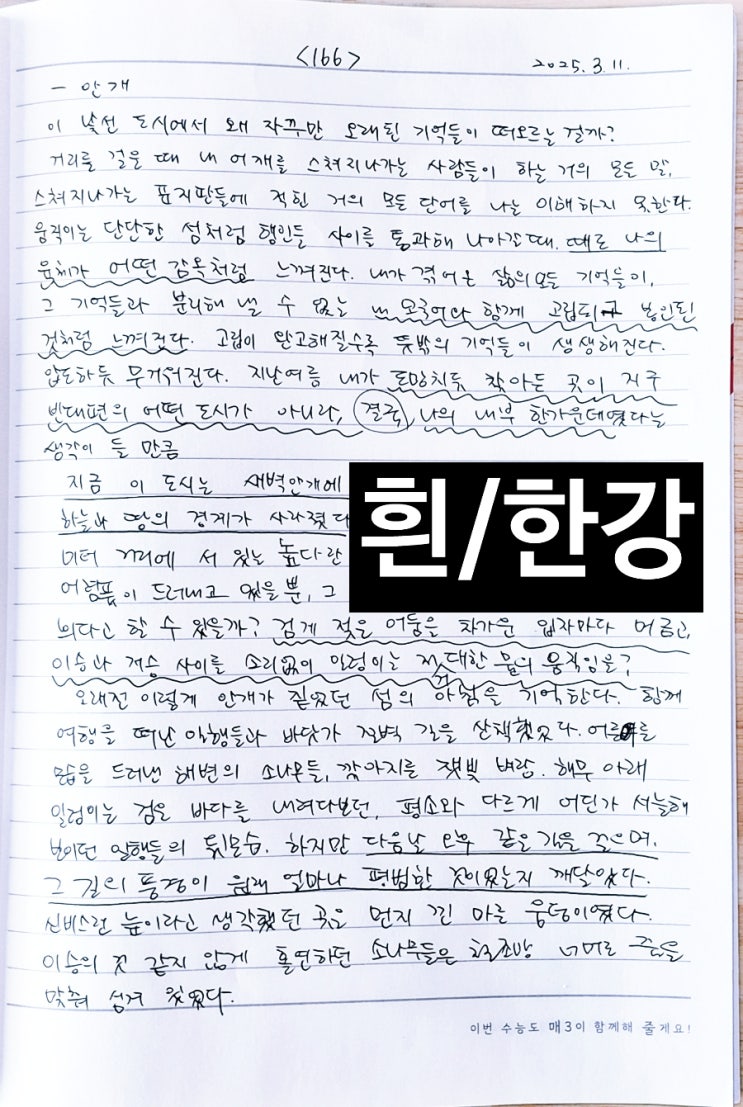 <166>
2025.3.11.
- 안개
이 낯선 도시에서 왜 자꾸만 오래된 기억들이 떠오르는 걸까?
거리를 걸을 때 내 어깨를 스쳐지나가는 사람들이 하는 거의 모든 말,
스쳐지나가는 표지판들에 적힌 거의 모든 단어를 나는 이해하지 못한다.
움직이는 단단한 섬처럼 행인들 사이를 통과해 나아갈 때, 때로 나의
육체가 어떤 감옥처럼 느껴진다. 내가 겪어온 삶의 모든 기억들이,
그 기억들과 분리해 낼 수 없는 모국어와 함께 고립되고 봉인된
것처럼 느껴진다. 고립이 완고해질수록 뜻밖의 기억들이 생생해진다.
압도하듯 무거워진다. 지난여름 내가 도망치듯 찾아든 곳이 지구
반대편의 어떤 도시가 아니라, 결국, 나의 내부 한가운데였다는
생각이 들 만큼
지금 이 도시는 새벽안개에
하늘과 땅의 경계가 사라졌다
미터 거리에 서 있는 높다란
어렴풋이 드러내고 있을 뿐, 그
흰/한강
다고 할 수 있을까? 검게 젖은 어둠을 차가운 입자마다 머금고,
이승과 저승 사이를 소리없이 일렁이는 거대한 물의 움직임을?
오래전 이렇게 안개가 짙었던 섬의 아침을 기억한다. 함께
여행을 떠난 일행들과 바닷가 절벽 길을 산책했었다. 어른어른
모습을 드러낸 해변의 소나무들, 깎아지를 잿빛 벼랑. 해무 아래
일렁이는 검은 바다를 내려다보던, 평소와 다르게 어딘가 서늘해
보이던 일행들의 뒷모습. 하지만 다음날 오후 같은 길을 걸으며,
그 길의 풍경이 원래 얼마나 평범한 것이었는지 깨달았다.
신비스런 늪이라고 생각했던 곳은 먼지 낀 마른 웅덩이였다.
이승의 것 같지 않게 홀연하던 소나무들은 철조망 너머로 줄을
맞춰 심겨 있었다.
이번 수능도 매3이 함께해 줄게요!